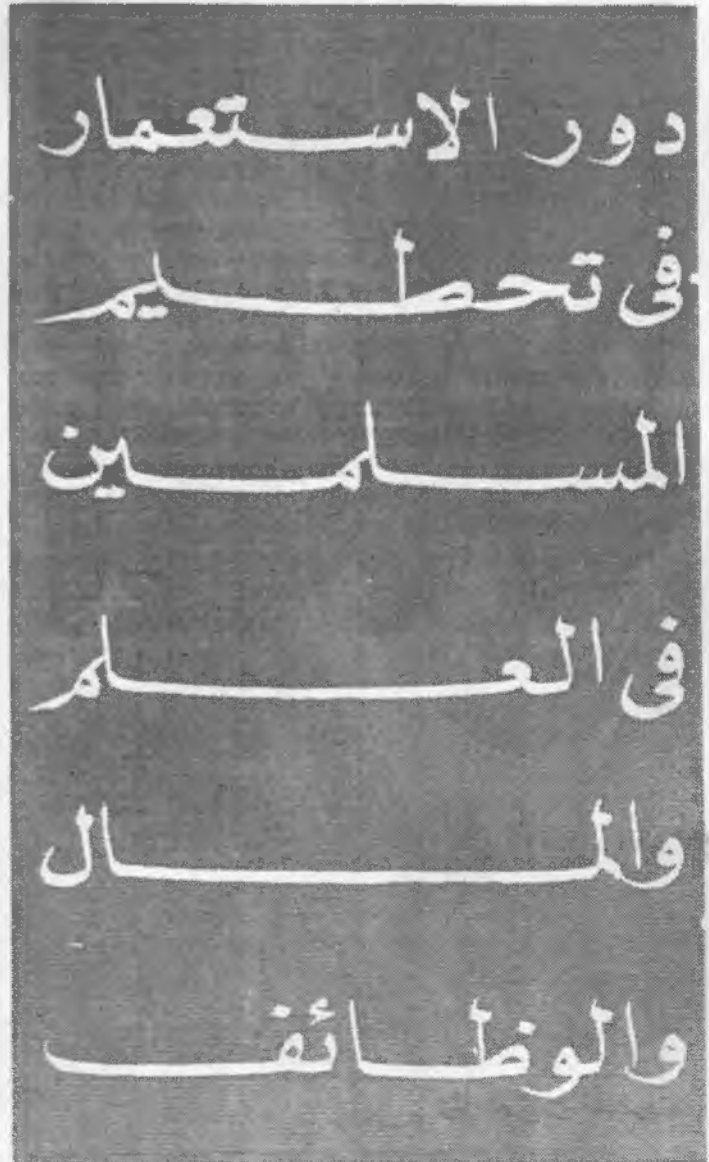 دور الاستعمار
فى تحطيم
المسلمين
فى العلم
والمال
والوظائف